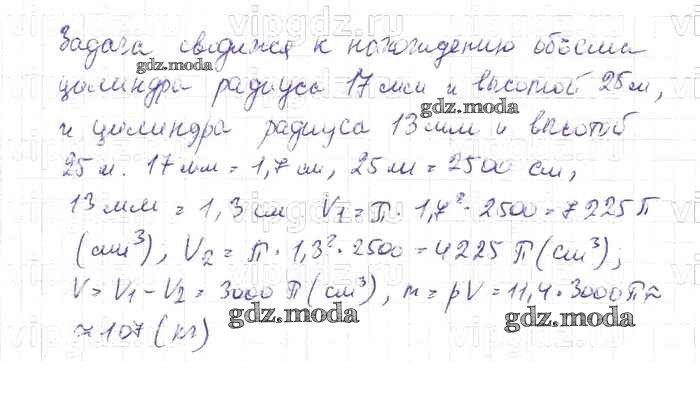 Задача сводится к нахождению объёма
цилиндра радиуса 17 мм и высотой 25 м,
и цилиндра радиуса 13 мм и высотой
25 м. 17 мм = 1,7 см, 25 м = 2500 см,
13 мм = 1,3 см V₁ = π · 1,7² · 2500 = 7225 π
(см³); V₂ = π · 1,3² · 2500 = 4225 π (см³);
V = V₁ - V₂ = 3000 π (см³), m = ρV = 11,4 · 3000 π ≈
≈ 107 (кг)
gdz.moda
gdz.moda
gdz.moda
gdz.moda